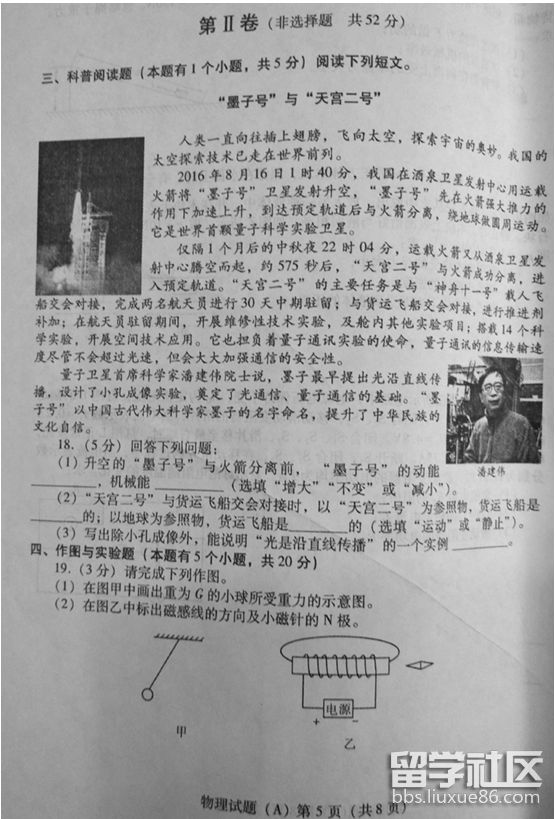 第Ⅱ卷(非选择题 共52分)
三、科普阅读题(本题有1个小题,共5分)阅读下列短文。
“墨子号”与“天宫二号”
人类一直向往插上翅膀,飞向太空,探索宇宙的奥妙。我国的
太空探索技术已走在世界前列。
2016年8月16日1时40分,我国在酒泉卫星发射中心用运载
火箭将“墨子号”卫星发射升空,“墨子号”先在火箭强大推力的
作用下加速上升,到达预定轨道后与火箭分离,绕地球做圆周运动。
它是世界首颗量子科学实验卫星。
仅隔1个月后的中秋夜22时04分,运载火箭又从酒泉卫星发
射中心腾空而起,约575秒后,“天宫二号”与火箭成功分离,进
入预定轨道。“天宫二号”的主要任务是与“神舟十一号”载人飞
船交会对接,完成两名航天员进行30天中期驻留;与货运飞船交会对接,进行推进剂
补加;在航天员驻留期间,开展维修性技术实验,及舱内其他实验项目;搭载14个科
学实验,开展空间技术应用。它也担负着量子通讯实验的使命,量子通讯的信息传输速
度尽管不会超过光速,但会大大加强通信的安全性。
量子卫星首席科学家潘建伟院士说,墨子最早提出光沿直线传
播,设计了小孔成像实验,奠定了光通信、量子通信的基础。“墨
子号”以中国古代伟大科学家墨子的名字命名,提升了中华民族的
文化自信。
潘建伟
18.(5分)回答下列问题:
(1)升空的“墨子号”与火箭分离前,“墨子号”的动能
________,机械能________(选填“增大”“不变”或“减小”)。
(2)“天宫二号”与货运飞船交会对接时,以“天宫二号”为参照物,货运飞船是
________的;以地球为参照物,货运飞船是________的(选填“运动”或“静止”)。
(3)写出除小孔成像外,能说明“光是沿直线传播”的一个实例________。
四、作图与实验题(本题有5个小题,共20分)
19.(3分)请完成下列作图。
(1)在图甲中画出重为G的小球所受重力的示意图。
(2)在图乙中标出磁感线的方向及小磁针的N极。
电源
+ -
甲
乙
物理试题(A)第5页(共8页)
留学社区
bbs.liuxue86.com